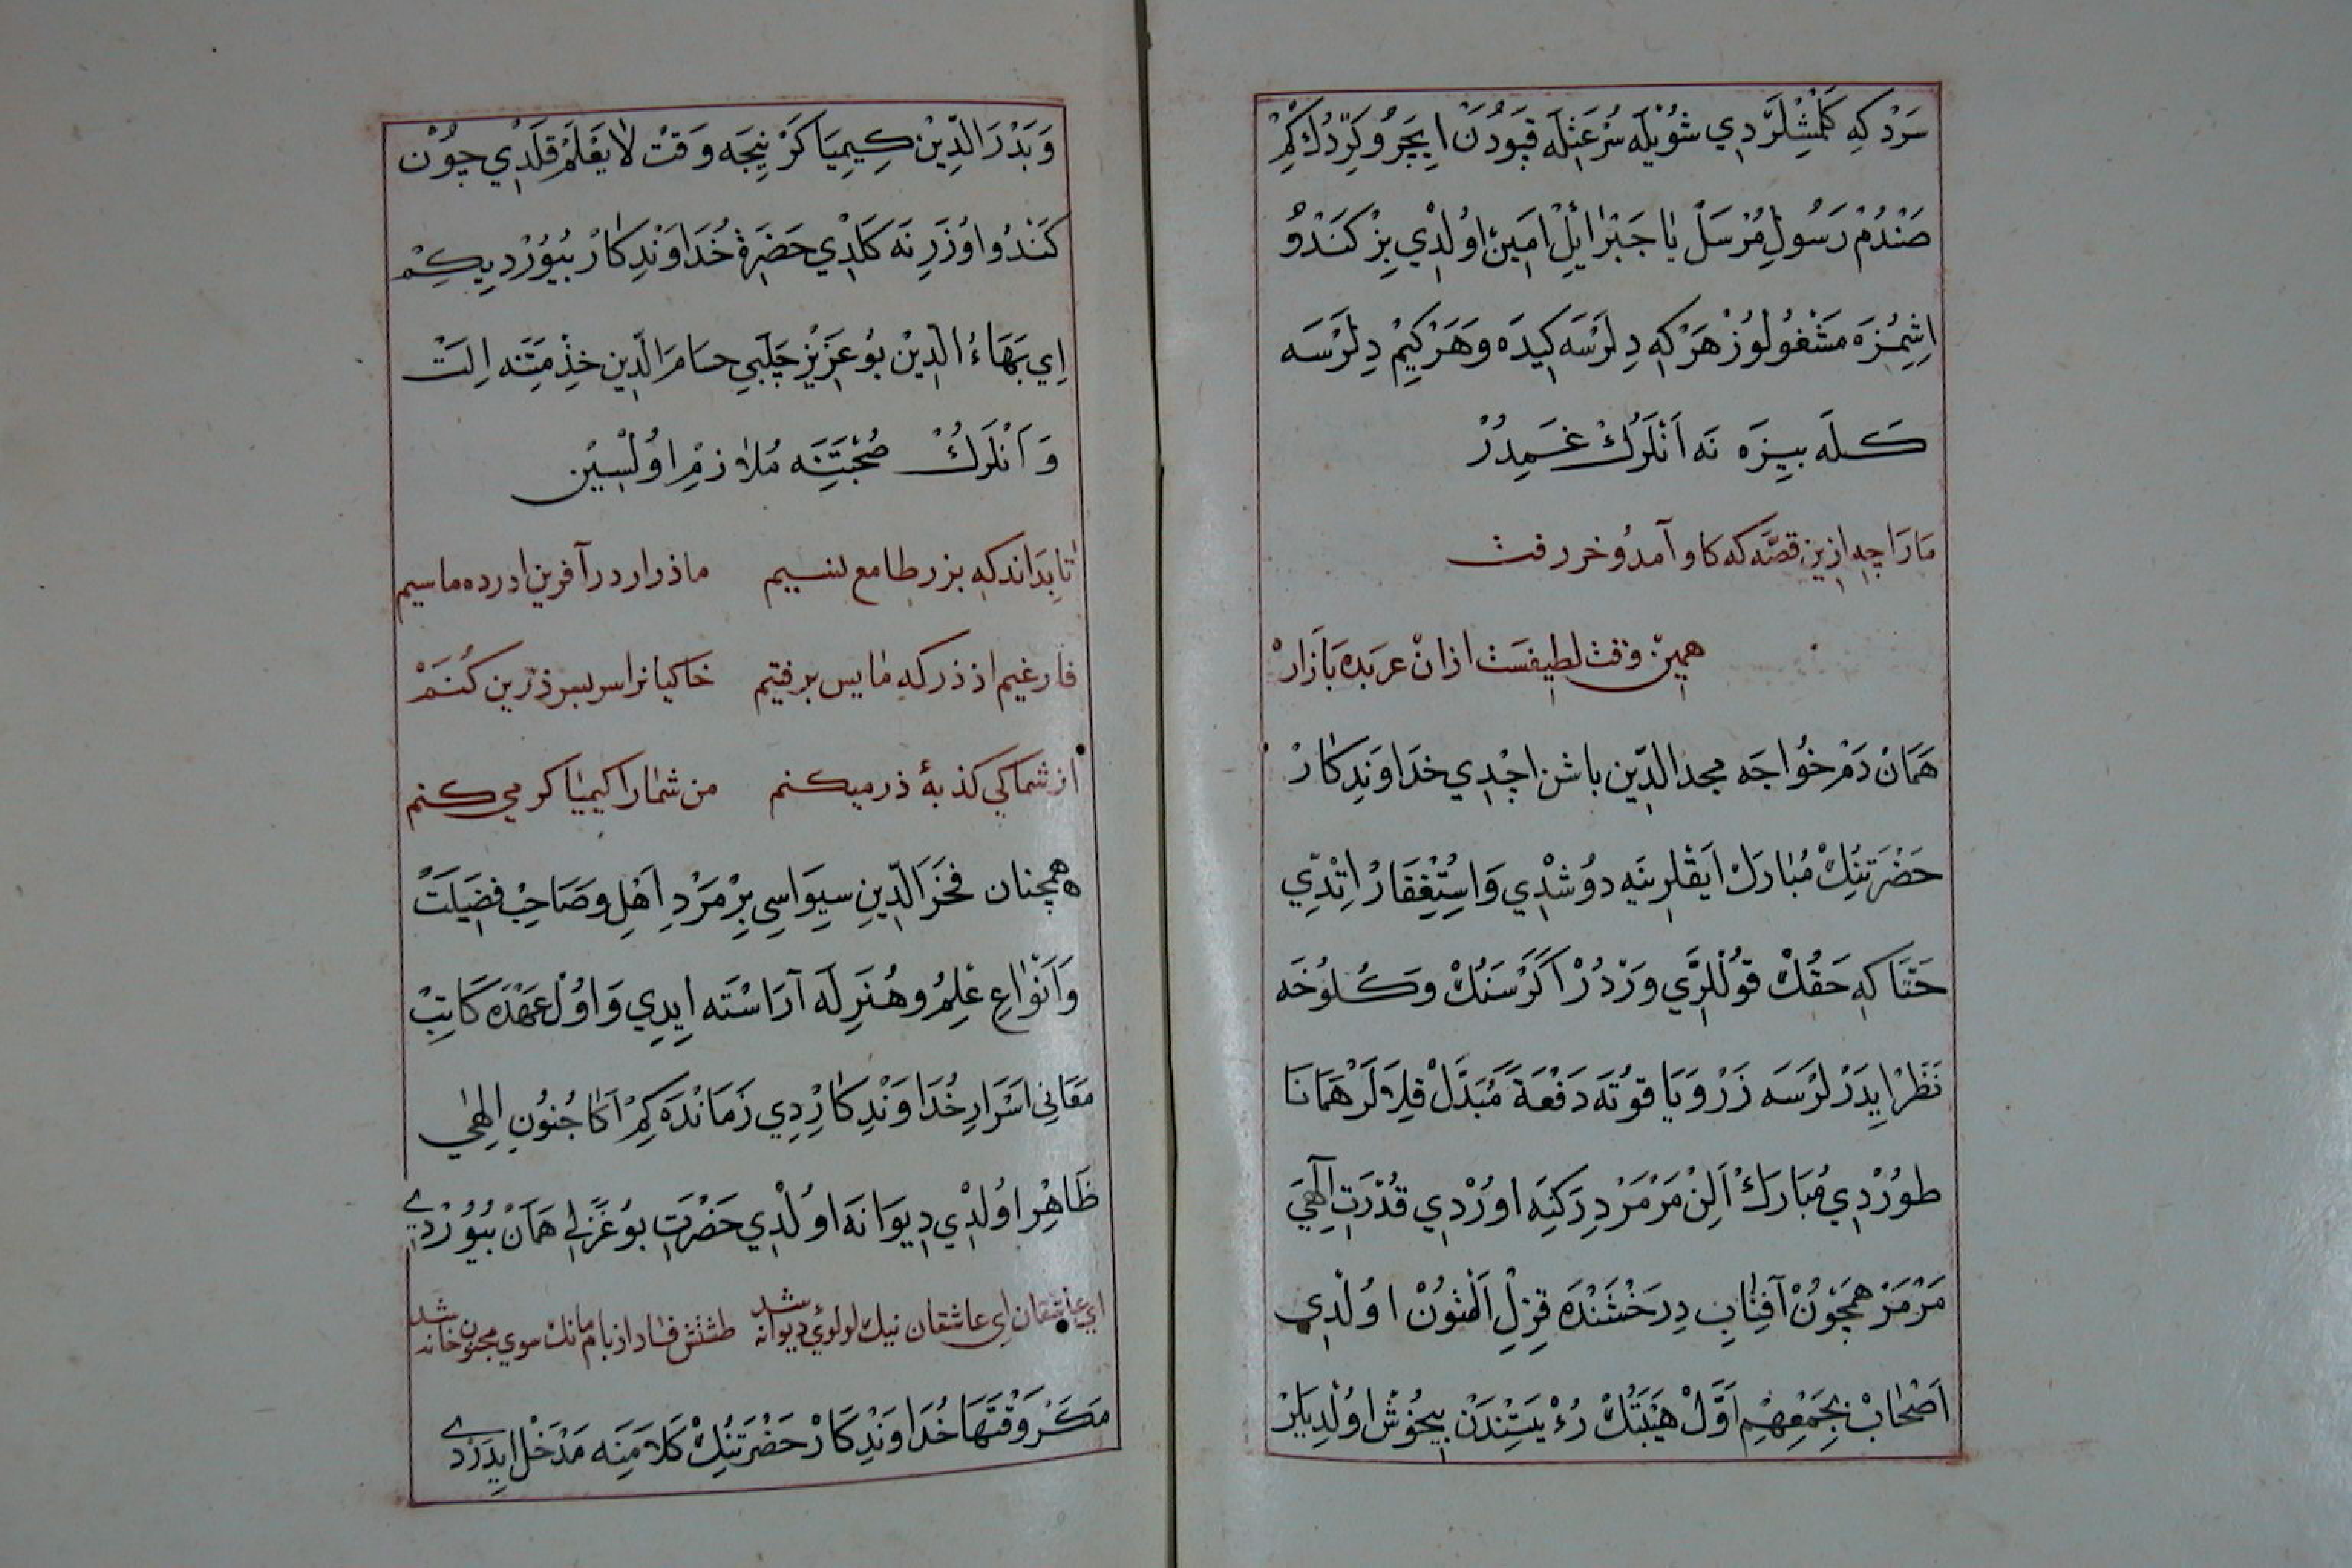 سَرْدْ كِه كَلْمِشْلَرْدِي شُوْيْلَه سُرْعَتْلَه قَپُودُنْ اِيچَرُو كِرْدُكْ كِمْ
صَنْدُمْ رَسُولِ مُرْسَلْ يَا جَبْرَائِلِ اَمِينْ اوُلْدِي بِزْ كَنْدُو
اِشِمُزِه مَشْغُولُوزْ هَرْكِه دِلَرْسَه كِيدَه وَهَرْكِيمْ دِلَرْسَه
كَلَه بِيزَه نَه اَنْلَرُكْ غَمِدُرْ
مَارَا چِه ازين قصَّه كه كاو آمد وُخر رفت
همين وقت لطيفست ازان عربده بَازَارْ
هَمَانْ دَمْ خُوَاجَه مجد الدّين باشن اچْدِي خدَاوَنْدِكَارْ
حَضْرَتِنُكْ مُبَارَكْ اَيَقْلَرِينَه دوُشْدِي وَاسْتِغْفَارْ اِتْدِي
حَتَّا كِه حَقُكْ قوُللَرِي وَرْدُرْ اَكَرْ سَنْكْ وَكُلُوخَه
نَظَرْ اِيدَرْلَرْسَه زَرْ وَيَا قوُتَه دَفْعَةً مُبَدَّلْ قِلَرْلَرْ هَمَانَا
طوُرْدِي مُبَارَكْ اَلِنْ مَرْمَرْ دِرَكِنَه اوُرْدِي قُدْرَتِ اِلٰهِيَ
مَرْمَرْ هَمْچُونْ آفِتَابِ دِرَخْشَنْدَه قِزِلْ اَلْتُونْ اوُلْدِي
اَصْحَابْ بِجَمْعِهِمْ اَوَّلْ هَيْبَتُكْ رُؤْيَتِنْدَنْ بِيخُوشْ اوُلْدِيلَرْ
وَبَدْرَ الدِّيْنِ كِيمِيَاكَرْ نِيجَه وَقْتْ لَا يَعْلَمْ قَلْدِي چُونْ
كَنْدُو اوُزَرِنَه كَلْدِي حَضْرَةِ خُدَاوَنْدِكَارْ بُيُوُرْدِيكِمْ
اِي بَهَاءُ الدِّيْنْ بُو عَزِيزِ چَلَبِي حسَامَ الدِّينِ خِذْمَتِنَه اِلَتْ
وَ اَنْلَرُكْ صُحْبَتِنَه مُلَازِمْ اوُلْسِيْن
تا بِدَاند كه بزر طامع نسيم ماذرار در آفرين ادرده ماسيم
فارغيم از ذر كه مايس بر فتيم خاكيانرا سر بسر ذرين كُنَمْ
از شما كي كذبهٔ ذر ميكنم من شما را كيميا كر مي كنم
همچنان فخَرَ الّدِينِ سيواسِي بِرْ مَرْدِ اَهْلِ وصَاحِبْ فضِيلَتْ
وَاَنْوَاعِ عْلِمُ وهُنَرِلَه آرَاسْتَه اِيدِي وَاوُلْ عَهْدَه كَاتِبْ
مَعَانِي اَسْرَارِ خُدَاوَنْدِكَارْدِي زَمَانْدَه كِمْ اَكَا جُنُونِ الٰهِي
ظَاهِرْ اوُلْدِي دِيوَانَه اوُلْدِي حَضْرَتِ بُو غَزَلِي هَمَانْ بُيُوُرْدِي
اي عاشقان اي عاشقان نيك لولوئي ديوانه شد طشتش فتاد از بام مانك سوي مجنون خانه شد
مَكَرْ وَقْتَهَا خُدَاوَنْدِكَارْ حَضْرَتِنُكْ كَلَامِنَه مَدْخَلْ اِيدَرْدِي